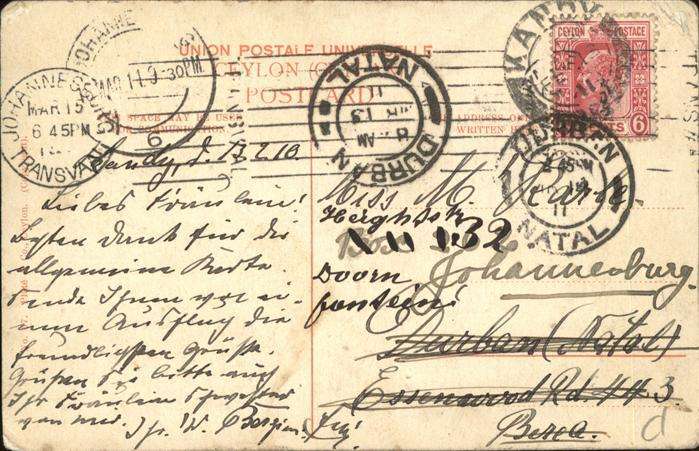 UNION POSTALE UNIVERSELLE
CEYLON
POSTCARD
SPACE MAY BE USED
FOR COMMUNICATION
ADDRESS
WRITTEN
CEYLON POSTAGE
6 CENTS 6
KANDY
JOHANNESBURG
MAR 15
6 45PM
TRANSVAAL
JOHANNE
MAR 11 9-30PM
6
NATAL
13
AM
DURBAN
DURBAN
45PM
11
NATAL
Kandy, d. 13.2.10
Liebes Fräulein!
Besten Dank für die
allgemeine Karte.
Sende Ihnen von ei-
nem Ausflug die
freundlichsten Grüße.
Grüßen Sie bitte auch
Ihr Fräulein Schwester
von mir. Ihr W.
Miss M.
132
Doorn
fontein
Johannesburg.
Durban (Natal)
Essenwood Rd. 443
Berea.
d